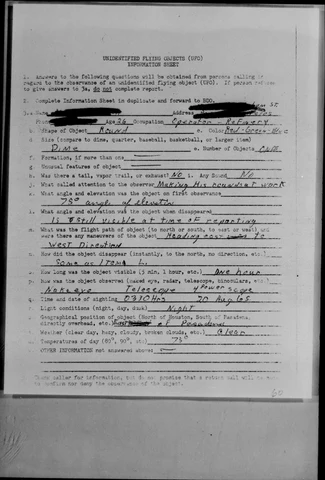 UNIDENTIFIED FLYING OBJECTS (UFO)
INFORMATION SHEET
1. Answers to the following questions will be obtained from persons calling in
regard to the observance of an unidentified flying object (UFO). If person refuses
to give answers to 3a, do not complete report.
2. Complete Information Sheet in duplicate and forward to
3. a. Name Address
Age 26 Occupation Operator - Refinery
b. Shape of Object Round c. Color Red-Green-
d. Size (compare to dime, quarter, baseball, basketball, or larger item)
Dime e. Number of Objects
f. Formation, if more than one
g. Unusual features of object
h. Was there a tail, vapor trail, or exhaust? No i. Any Sound No
j. What called attention to the observer Making His at work
k. What angle and elevation was the object on first observance
75° angle of elevation
l. What angle and elevation was the object when disappeared
Is still visible at time of reporting
m. What was the flight path of object (to north or south, to east or west) and
were there any maneuvers of the object. Heading east to
West Direction
n. How did the object disappear (instantly, to the north, no direction, etc.)
Same as Item L.
o. How long was the object visible (5 min, 1 hour, etc.) One hour
p. How was the object observed (naked eye, radar, telescope, binoculars, etc.)
Naked eye Telescope 4 Power scope
q. Time and date of sighting 0310Hrs 20 Aug 65
r. Light conditions (night, day, dusk) Night
s. Geographical position of object (North of Houston, South of Pasadena,
directly overhead, etc.) of Pasadena
t. Weather (clear day, hazy, cloudy, broken clouds, etc.) Clear
u. Temperatures of day (60°, 90°, etc.) 75°
v. OTHER INFORMATION not answered above:
caller for information, but do not promise that a return call will be made
to confirm nor deny the appearance of the object.